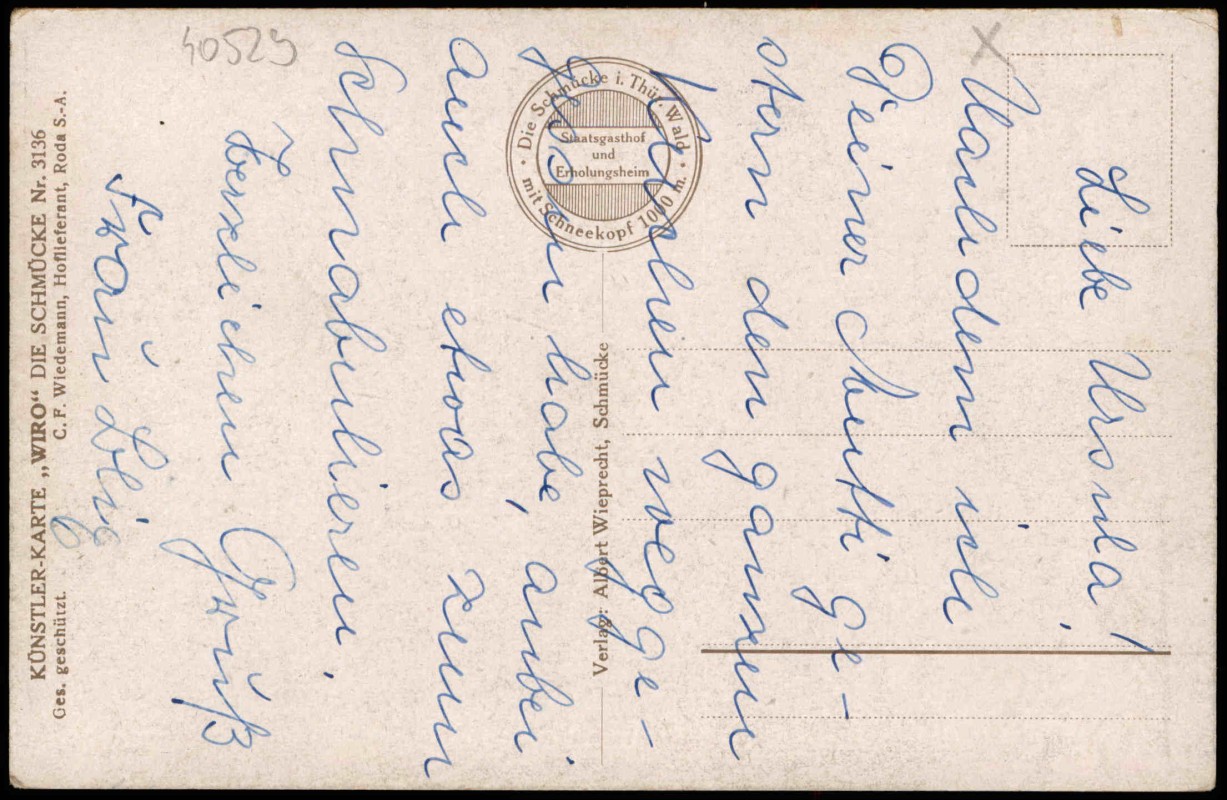 Liebe Ursula!
Nachdem ich
Deiner Mutti ge-
stern den ganzen
Kuchen wegge-
habe, anbei
auch etwas zum
Schnabulieren.
Herzlichen Gruß
Frau
40529
X
Die Schmücke i. Thür. Wald
Staatsgasthof
und
Erholungsheim
mit Schneekopf 1000 m.
Verlag: Albert Wieprecht, Schmücke
KÜNSTLER-KARTE „WIRO“ DIE SCHMÜCKE Nr. 3136
Ges. geschützt. C. F. Wiedemann, Hoflieferant, Roda S.-A.